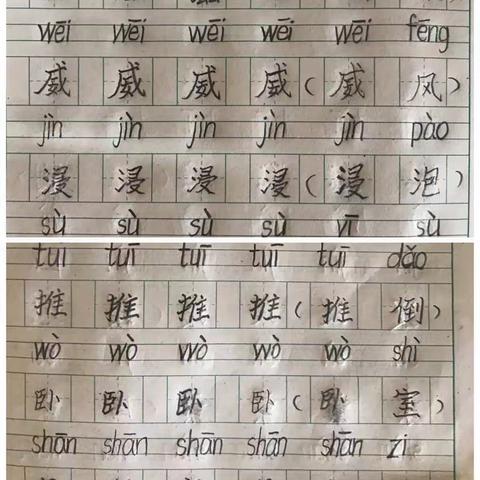 wēi wēi wēi wēi wēi fēng
威 威 威 威 ( 威 风 )
jìn jìn jìn jìn jìn pào
浸 浸 浸 浸 ( 浸 泡 )
sù sù sù sù yī sù
tuī tuī tuī tuī tuī dǎo
推 推 推 推 ( 推 倒 )
wò wò wò wò wò shì
卧 卧 卧 卧 ( 卧 室 )
shān shān shān shān shān zi